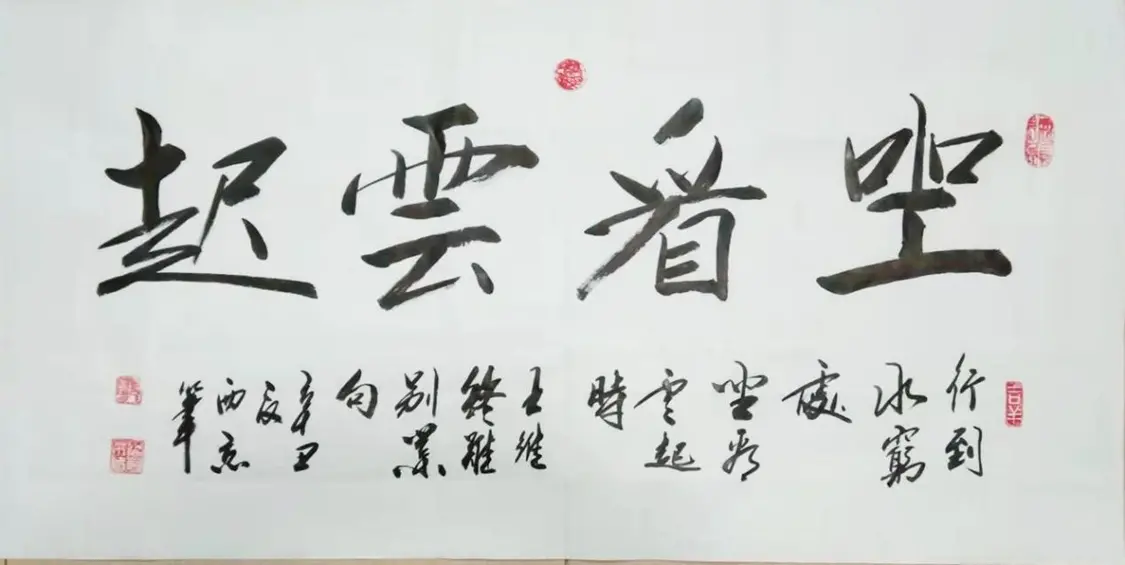 坐看雲起
行到
水窮
處
坐看
雲起
時
王維
終
別業
句
辛丑
夏
西京
筆
吉羊